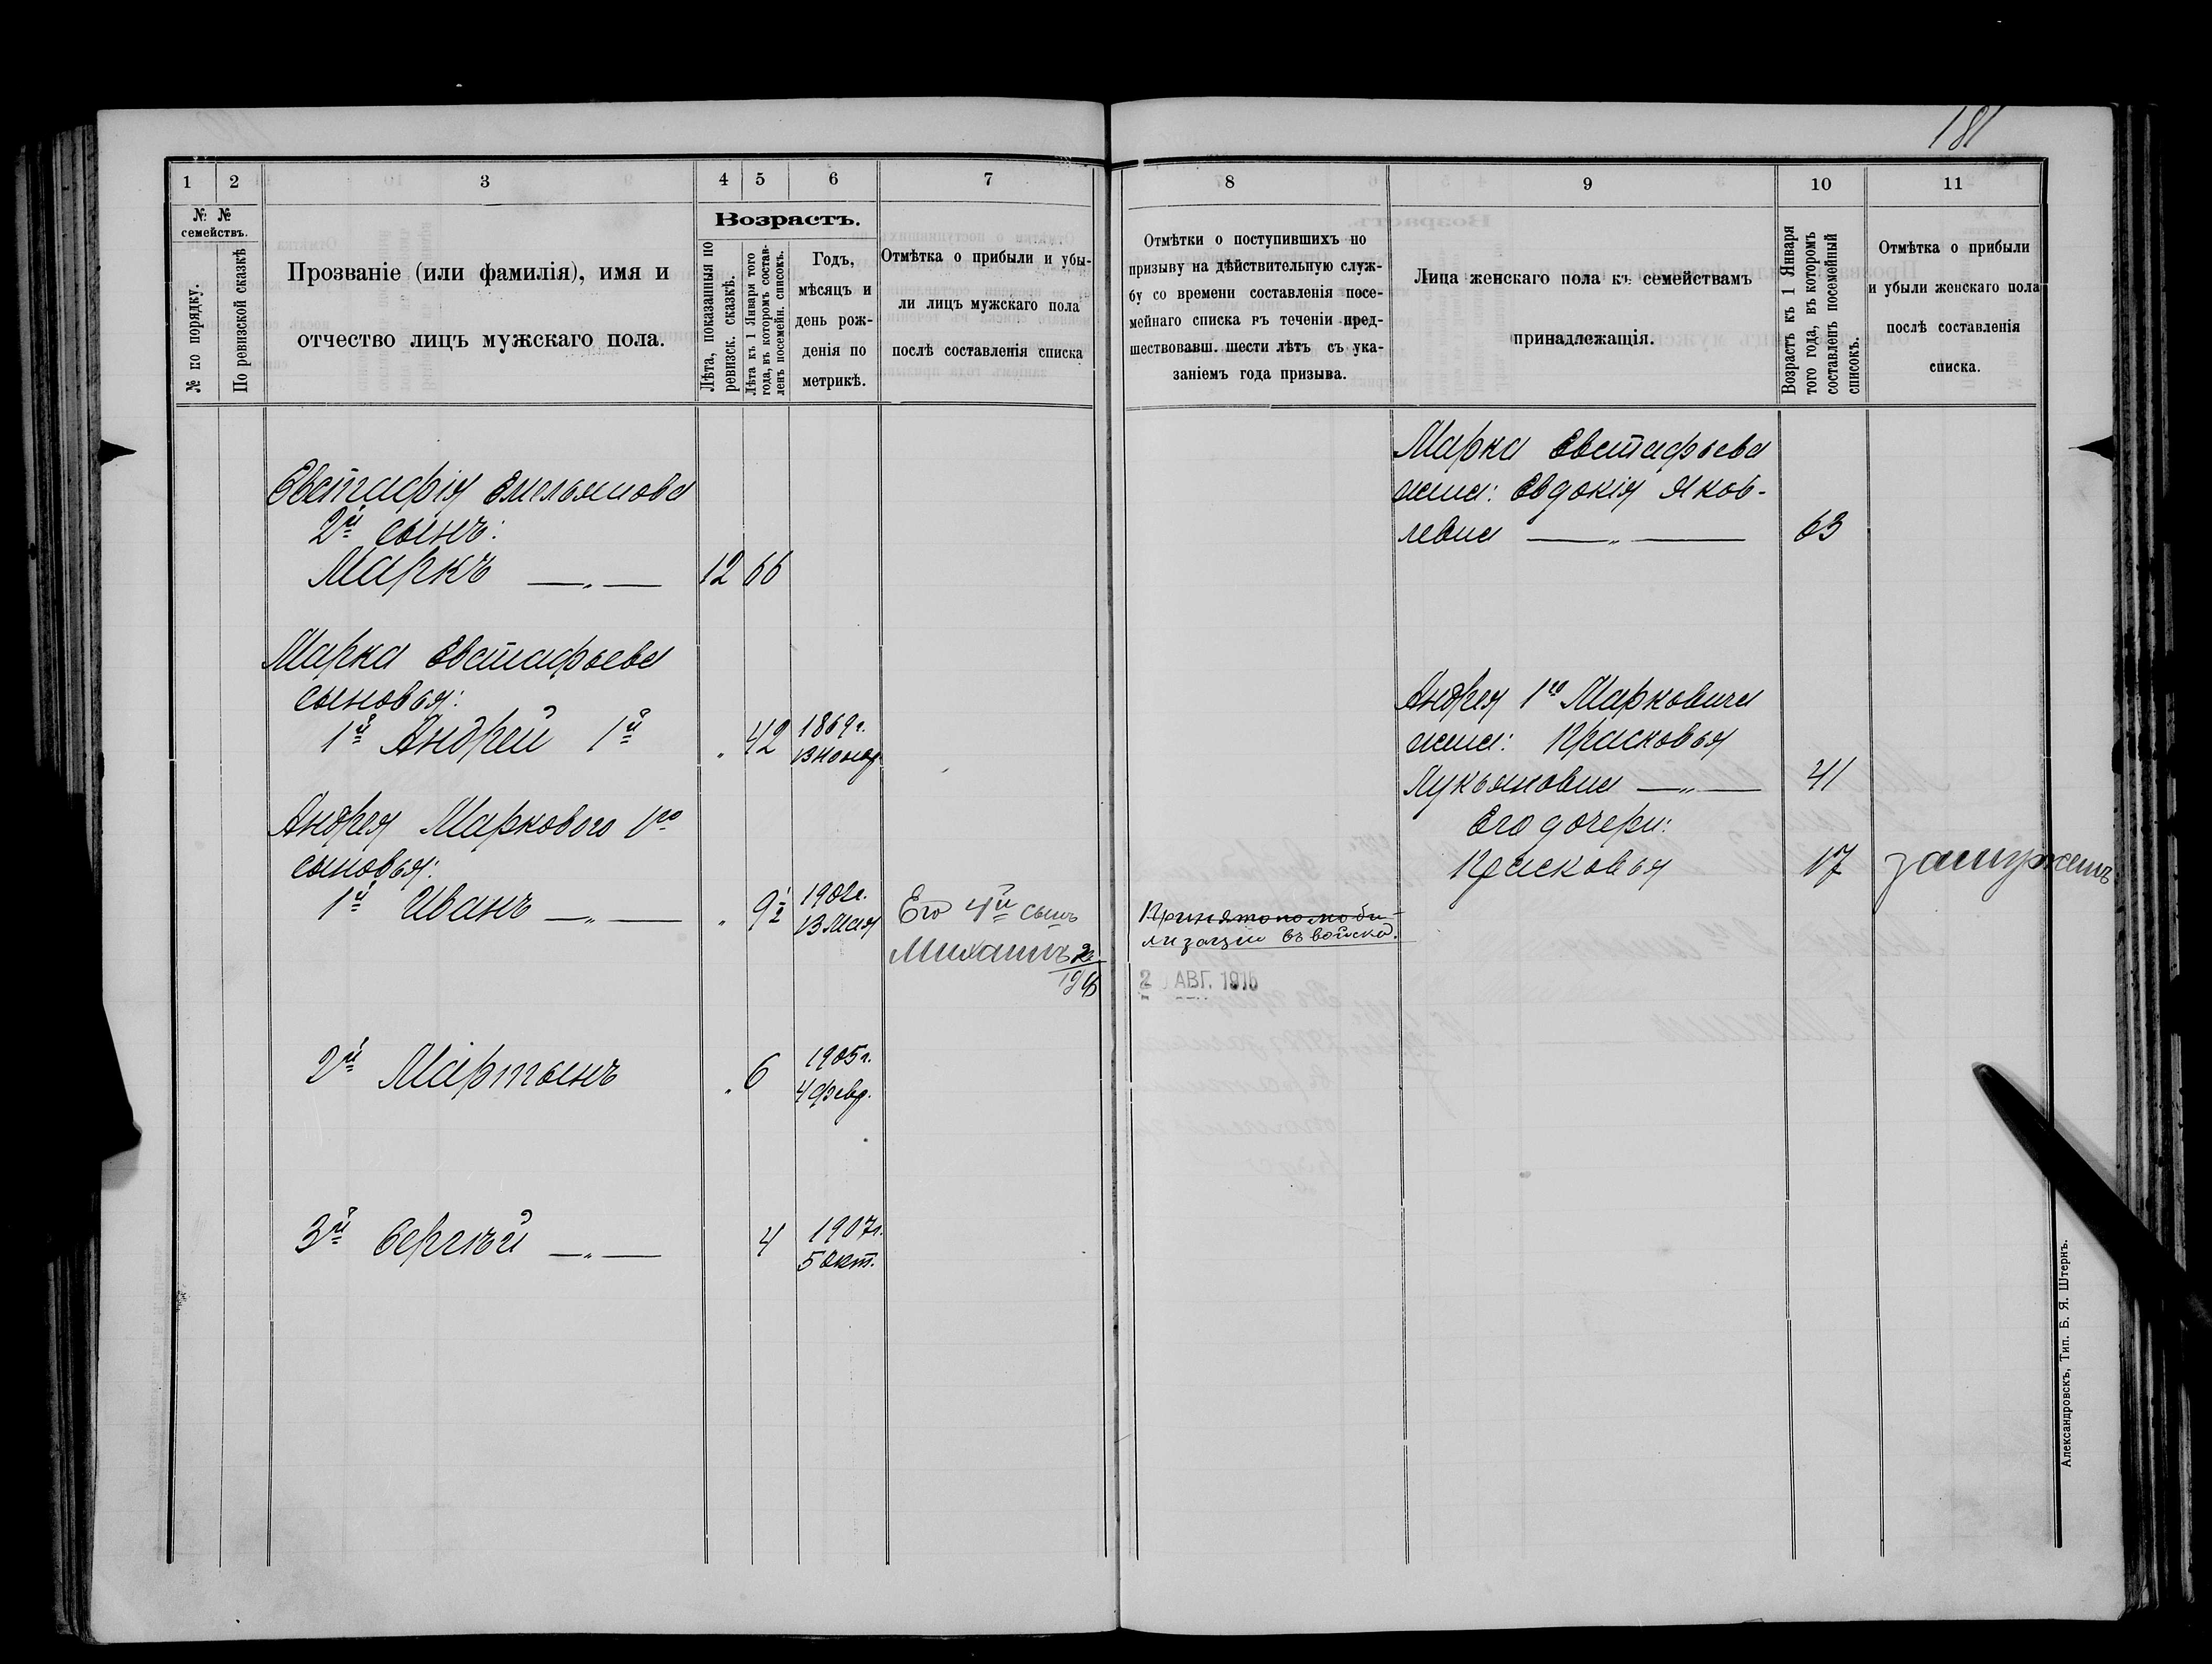 181
1 2 3 4 5 6 7
№ №
семействъ.
№ по порядку.
По ревизской сказкѣ
Прозваніе (или фамилія), имя и
отчество лицъ мужскаго пола.
Возрастъ.
Лѣта, показанныя по
ревизск. сказкѣ.
Лѣта къ 1 Января того
года, въ которомъ состав-
ленъ посемейн. списокъ.
Годъ,
мѣсяцъ и
день рож-
денія по
метрикѣ.
Отмѣтка о прибыли и убы-
ли лицъ мужскаго пола
послѣ составленія списка
Евстафія Емельянова
2й сынъ:
Маркъ —„— 12 66
Марка Евстафьева
сыновья:
1й Андрей 1й „ 42 1869г.
13 
Андрея Маркового 1го
сыновья:
1й Иванъ —„— „ 9½ 1902г.
13 Мая
Его 4й сынъ
Михаилъ
2й Мартынъ „ 6 1905г.
4 февр.
3й Сергѣй —„— 4 1907г.
5 Окт.
8 9 10 11
Отмѣтки о поступившихъ по
призыву на дѣйствительную служ-
бу со времени составленія посе-
мейнаго списка въ теченіи пред-
шествовавш. шести лѣтъ съ ука-
заніемъ года призыва.
Лица женскаго пола къ семействамъ
принадлежащія.
Возрастъ къ 1 Января
того года, въ которомъ
составленъ посемейный
списокъ.
Отмѣтка о прибыли
и убыли женскаго пола
послѣ составленія
списка.
Марка Евстафьева
жена: Евдокія Яков-
левна —„— 63
Андрея 1го Марковича
жена: Прасковья
Лукьяновна —„— 41
Его дочери:
Прасковья 17 замужемъ
Принятъ по моби-
лизаціи въ войска.
2 АВГ. 1915
Александровскъ, Тип. Б. Я. Штернъ.